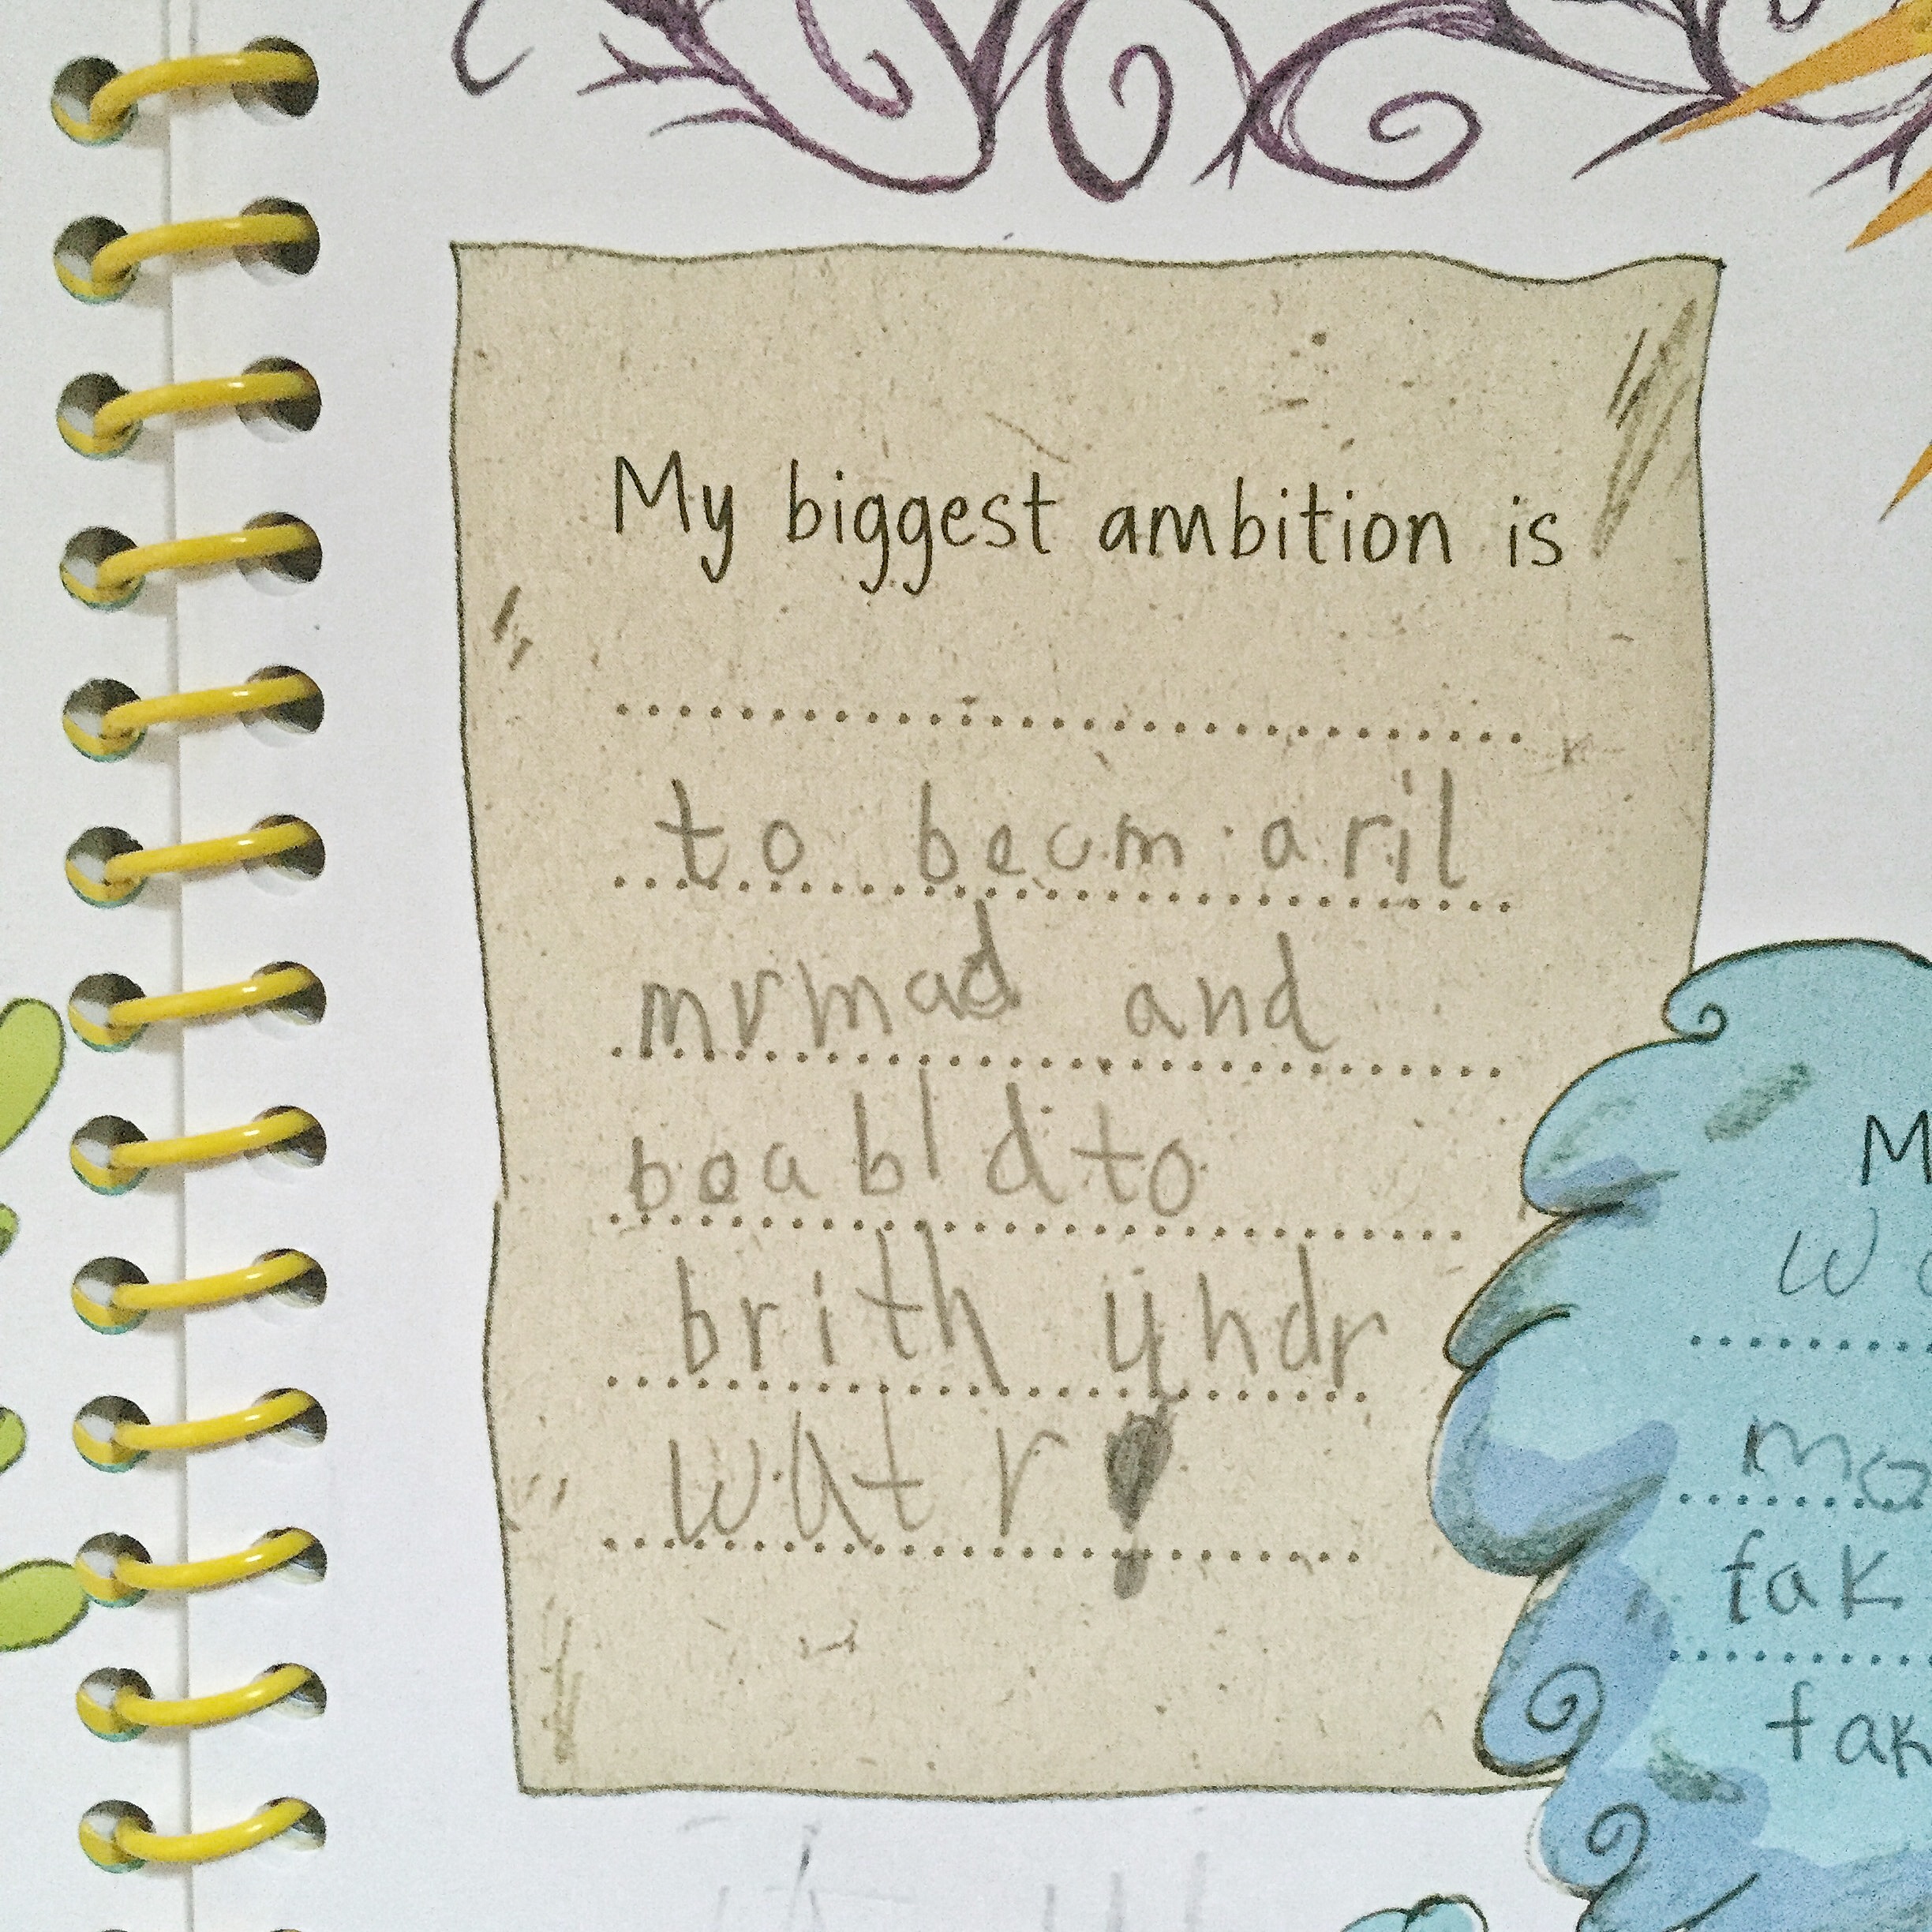 My biggest ambition is
to becm a ril
mrmad and
beabldto
brith undr
watr
M
fak
fak